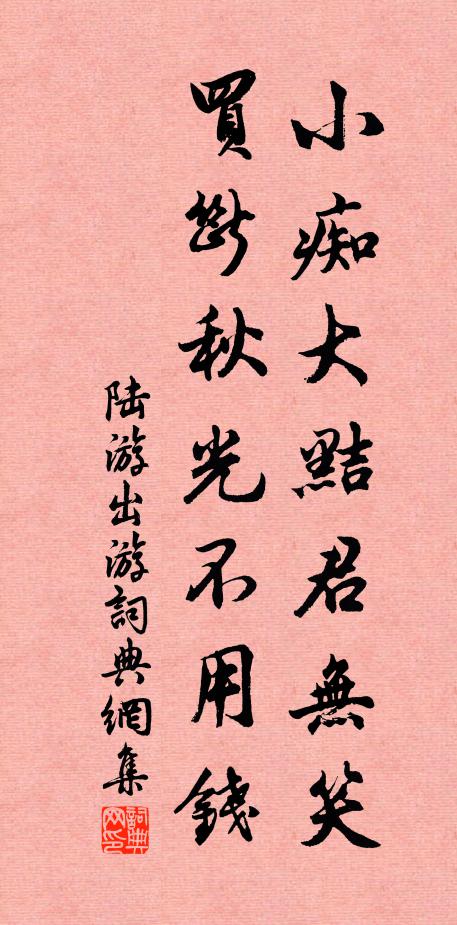 小痴大黠君無笑
買斷秋光不用錢
陸游出游詞典網集
詞典网印